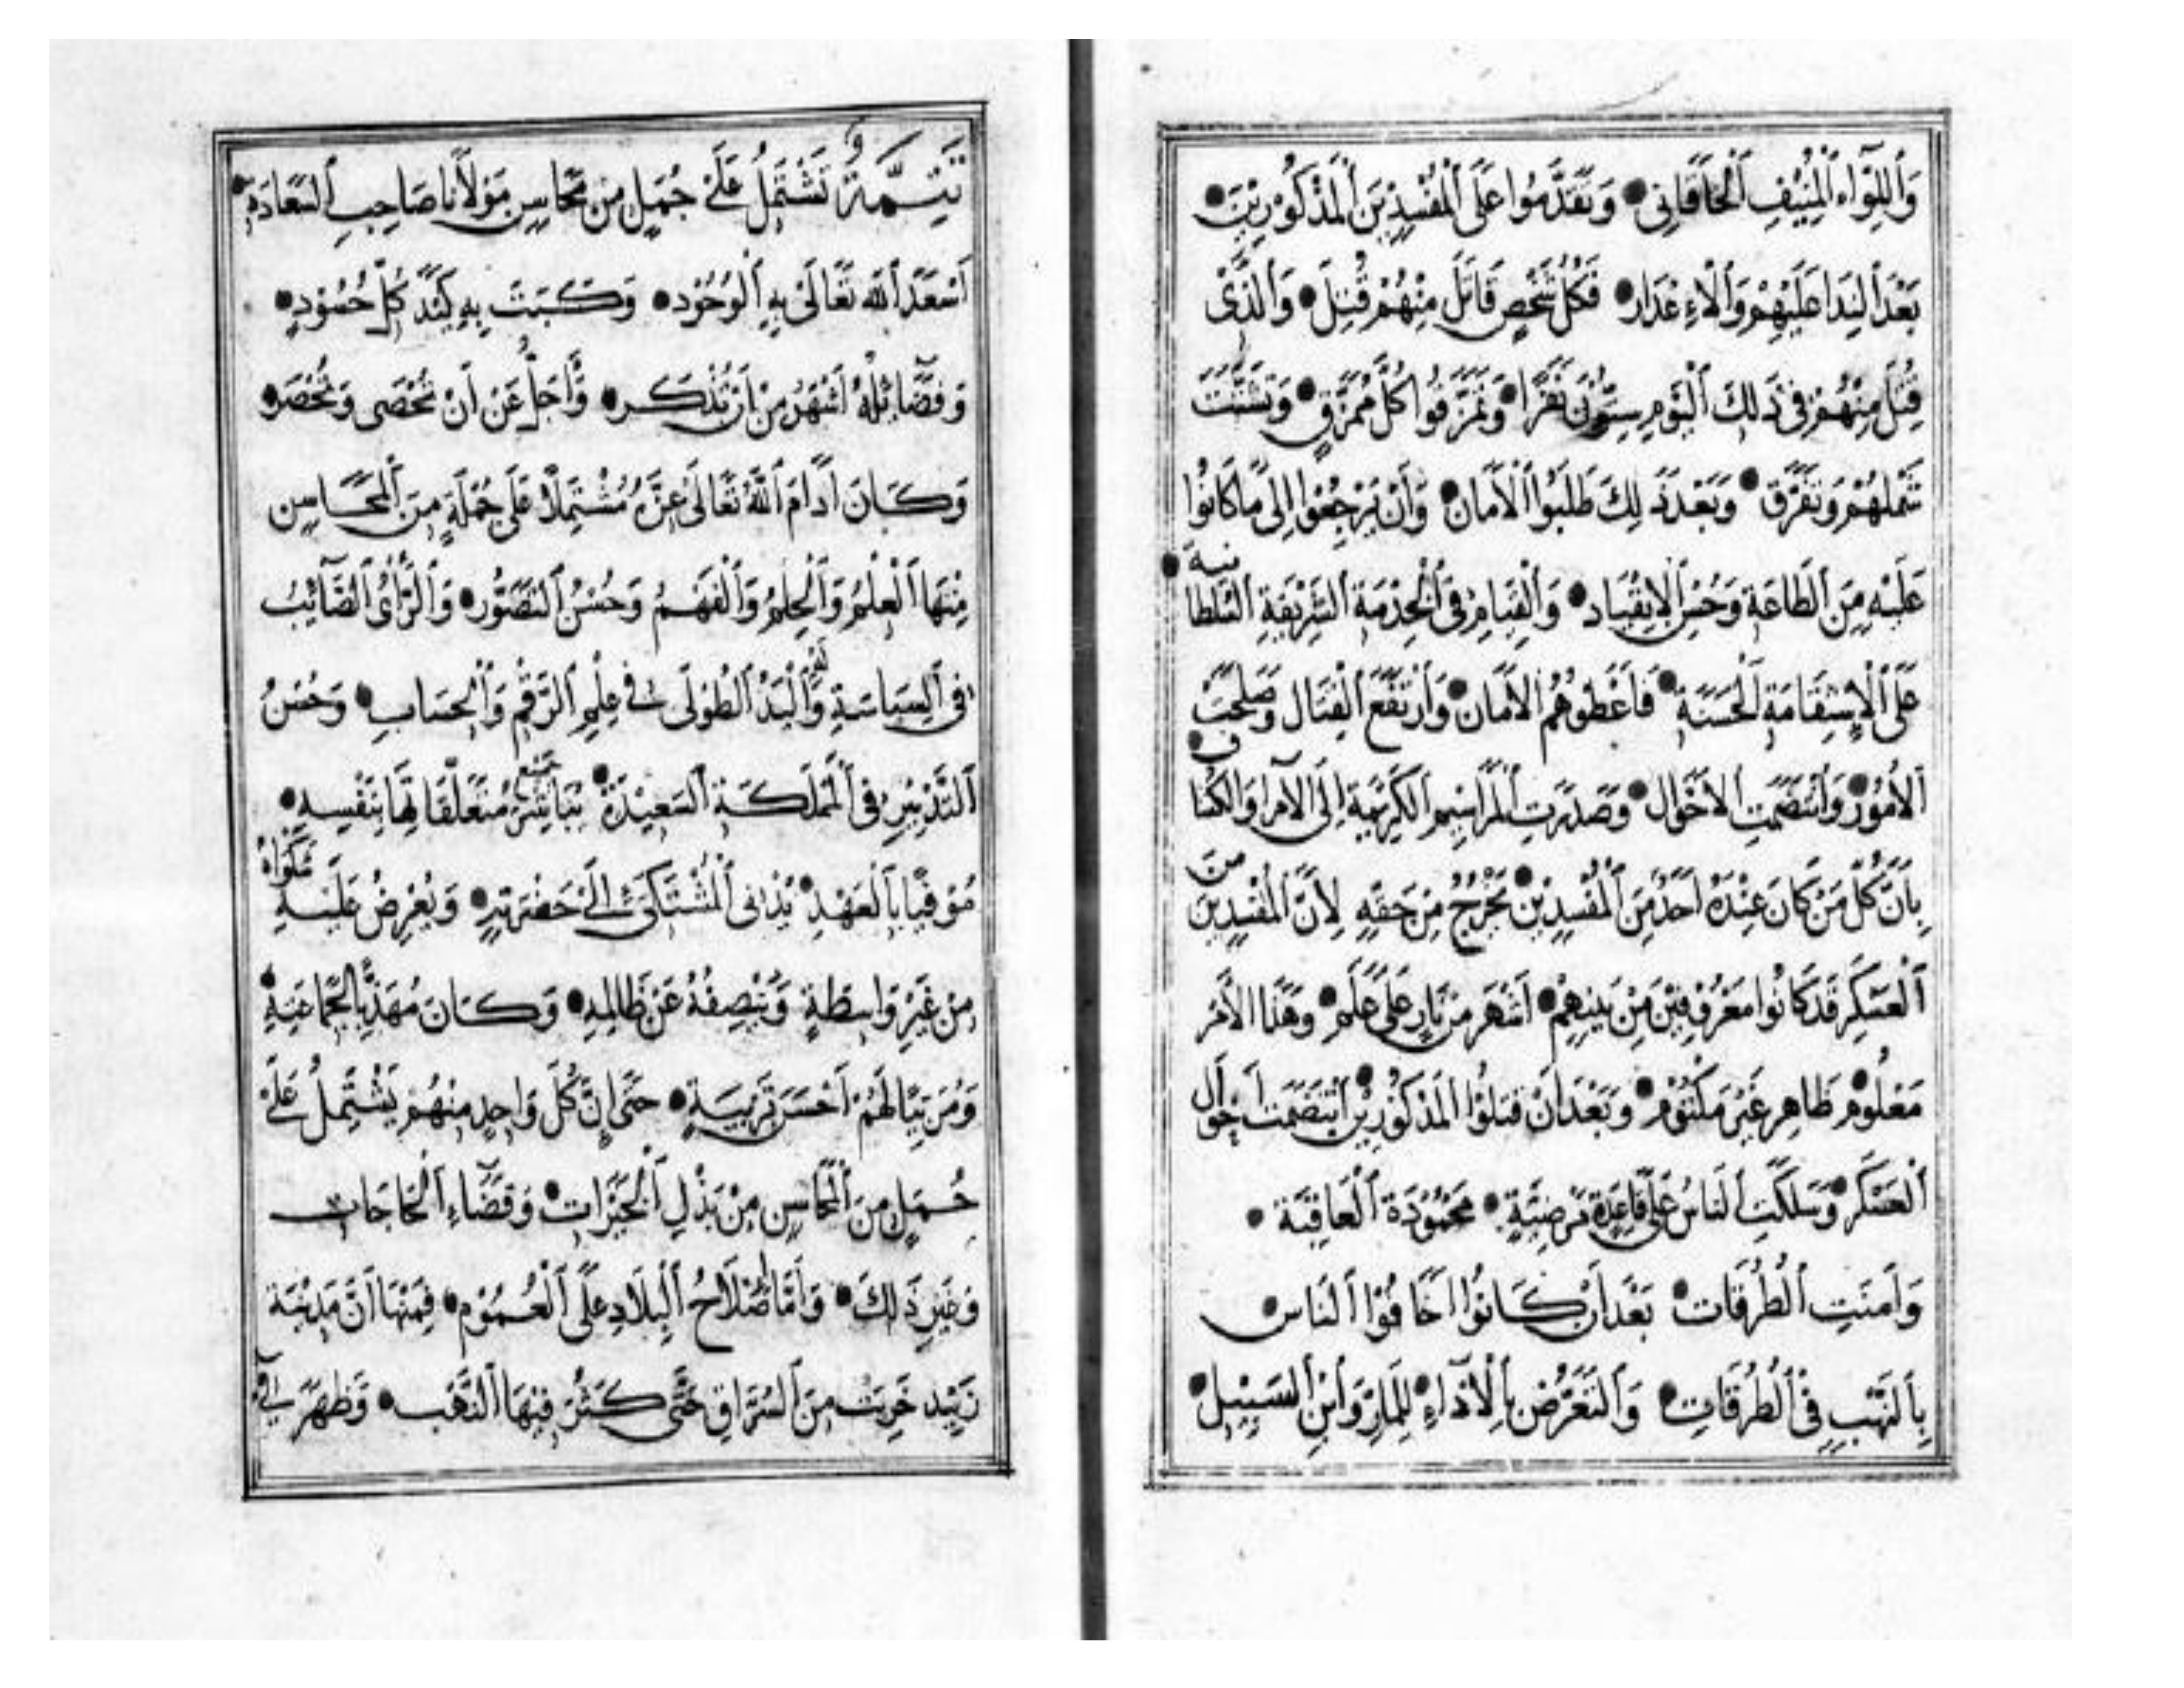 وَاللِّوَاءِ الْمُنِيْفِ الْخَاقَانِي • وَتَقَدَّمُوا عَلَى الْمُفْسِدِيْنَ الْمَذْكُوْرِيْنَ •
بَعْدَ النِدَا عَلَيْهِمْ وَالْاءِعْذَار • فَكُلُّ شَخْصٍ قَاتَلَ مِنْهُمْ قُتِلَ • وَالَّذِي
قُتِلَ مِنْهُمْ فِي ذَلِكَ الْيَوْمِ سِتُّوْنَ نَفَرًا • وَتَمَزَّقُوا كُلَّ مُمَزَّقٍ • وَتَشَتَّتَ
شَمْلهُمْ وَتَفَرَّق • وَبَعْدَ ذَلِكَ طَلَبُوا الْاَمَان • وَأَنْ يَرْجِعُوا إِلَى مَا كَانُوا
عَلَيْهِ مِنَ الطَاعَةِ وَحُسْنِ الْاِنْقِيَاد • وَالْقِيَامِ فِي الْخِدْمَةِ الشَرِيْفَةِ السُلْطَانِيَة •
عَلَى الْاِسْتِقَامَةِ الْحَسَنَةِ • فَاَعْطُوْهُمُ الْاَمَان • وَارْتَفَعَ الْقِتَال وَصَلُحَتْ
الْاُمُوْر • وَانْتَضَمَتِ الْاَحْوَال • وَصَدَرَتِ الْمَرَاسِيمِ الْكَرِيْمَةِ اِلَى الْاُمَرا وَالكُشَّاف •
بِاَنَّ كُلَّ مَنْ كَانَ عِنْدَهُ اَحَدٌ مِنَ الْمُفْسِدِيْن • يَخْرُجُ مِنْ حَقِّهِ لِاَنَّ الْمُفْسِدِيْنَ مِنَ
الْعَسْكَر قَدْ كَانُوا مَعْرُوْفِيْنَ مِنْ بَيْنِهِمْ • اَشْهَرَ مِنْ نَارٍ عَلَى عَلَمٍ • وَهَذَا الْاَمْر
مَعْلُوْم • ظَاهِر غَيْرَ مَكْتُوْم • وَبَعْدَ اَنْ قَتَلُوْا الْمَذْكُوْرِيْن • اِنْتَضَمَتْ اَحْوَال
الْعَسْكَر • وَسَلَكَتِ النَاسُ عَلَى قَاعِدَةٍ مَرْضِيَّةٍ • مَحْمُوْدَةَ الْعَاقِبَة •
وَاَمِنَتِ الْطُرُقَات • بَعْدَ اَنْ كَانُوْا اَخَافُوْا النَاس •
بِالنَهْبِ فِي الْطُرُقَاتِ • وَالتَعَرُّضِ بِالْاذَاءِ • لِلْمَارِ وَابْنِ السَبِيْل •
تَتِمَّةٌ تَشْتَمِلُ عَلَى جُمَلٍ مِنْ مَحَاسِنِ مَوْلَانَا صَاحِبِ السَعَادَةِ •
اَسْعَدَ اللهُ تَعَالَى بِهِ الْوُجُوْد • وَكَبَتَ بِهِ كَيْدَ كُلِّ حَسُوْدٍ •
وَفَضَائِلُهُ اَشْهَرُ مِنْ اَنْ تُذْكَر • وَاَجَلُّ عَنْ اَنْ تُحْصَى وَتُحْصَر •
وَكَانَ اَدَامَ اللهُ تَعَالَى عِزَّهُ مُشْتَمِلًا عَلَى جُمْلَةٍ مِنَ الْمَحَاسِن
مِنْهَا الْعِلْمُ وَالْحِلْمُ وَالْفَهَمُ وَحُسْنُ التَصَوُّر • وَالْرَأْيُ الصَّائِبُ
فِي السِيَاسَةِ وَالْيَدُ الطُوْلَى فِي عِلْمِ الرَقْمِ وَالْحِسَابِ • وَحُسْنُ
التَدْبِيْرِ فِي الْمَمْلَكَةِ السَعِيْدَة • يُبَاشِرُ مُتَعَلِّقَاتِهَا بِنَفْسِهِ •
مُوْفِيًا بِالْعَهْدِ • يُدْنِي الْمُشْتَكِي اِلَى حَضْرَتِهِ • وَيُعْرِضُ عَلَيْهِ شَكْوَاهُ
مِنْ غَيْرِ وَاسِطَةٍ وَيُنْصِفُهُ عَنْ ظَالِمِهِ • وَكَانَ مُهَذِّبًا لِجَمَاعَتِهِ •
وَمُرَبِّيًا لَهُمْ اَحْسَنَ تَرْبِيَةٍ • حَتَى اِنَّ كُلَّ وَاحِدٍ مِنْهُمْ يَشْتَمِلُ عَلَى
جُمَلٍ مِنَ الْمَحَاسِنِ مِنْ بَذْلِ الْخَيْرَات • وَقَضَاءِ الْحَاجَات
وَغَيْرِ ذَلِكَ • وَاَمَّا صَلَاحُ الْبِلَادِ عَلَى الْعُمُوْم • فَمِنْهَا اَنَّ مَدِيْنَة
زَبِيْد خَرِبَتْ مِنَ السُرَّاقِ حَتَّى كَثُرَ فِيْهَا النَهْب • وَظَهَرَ فِي